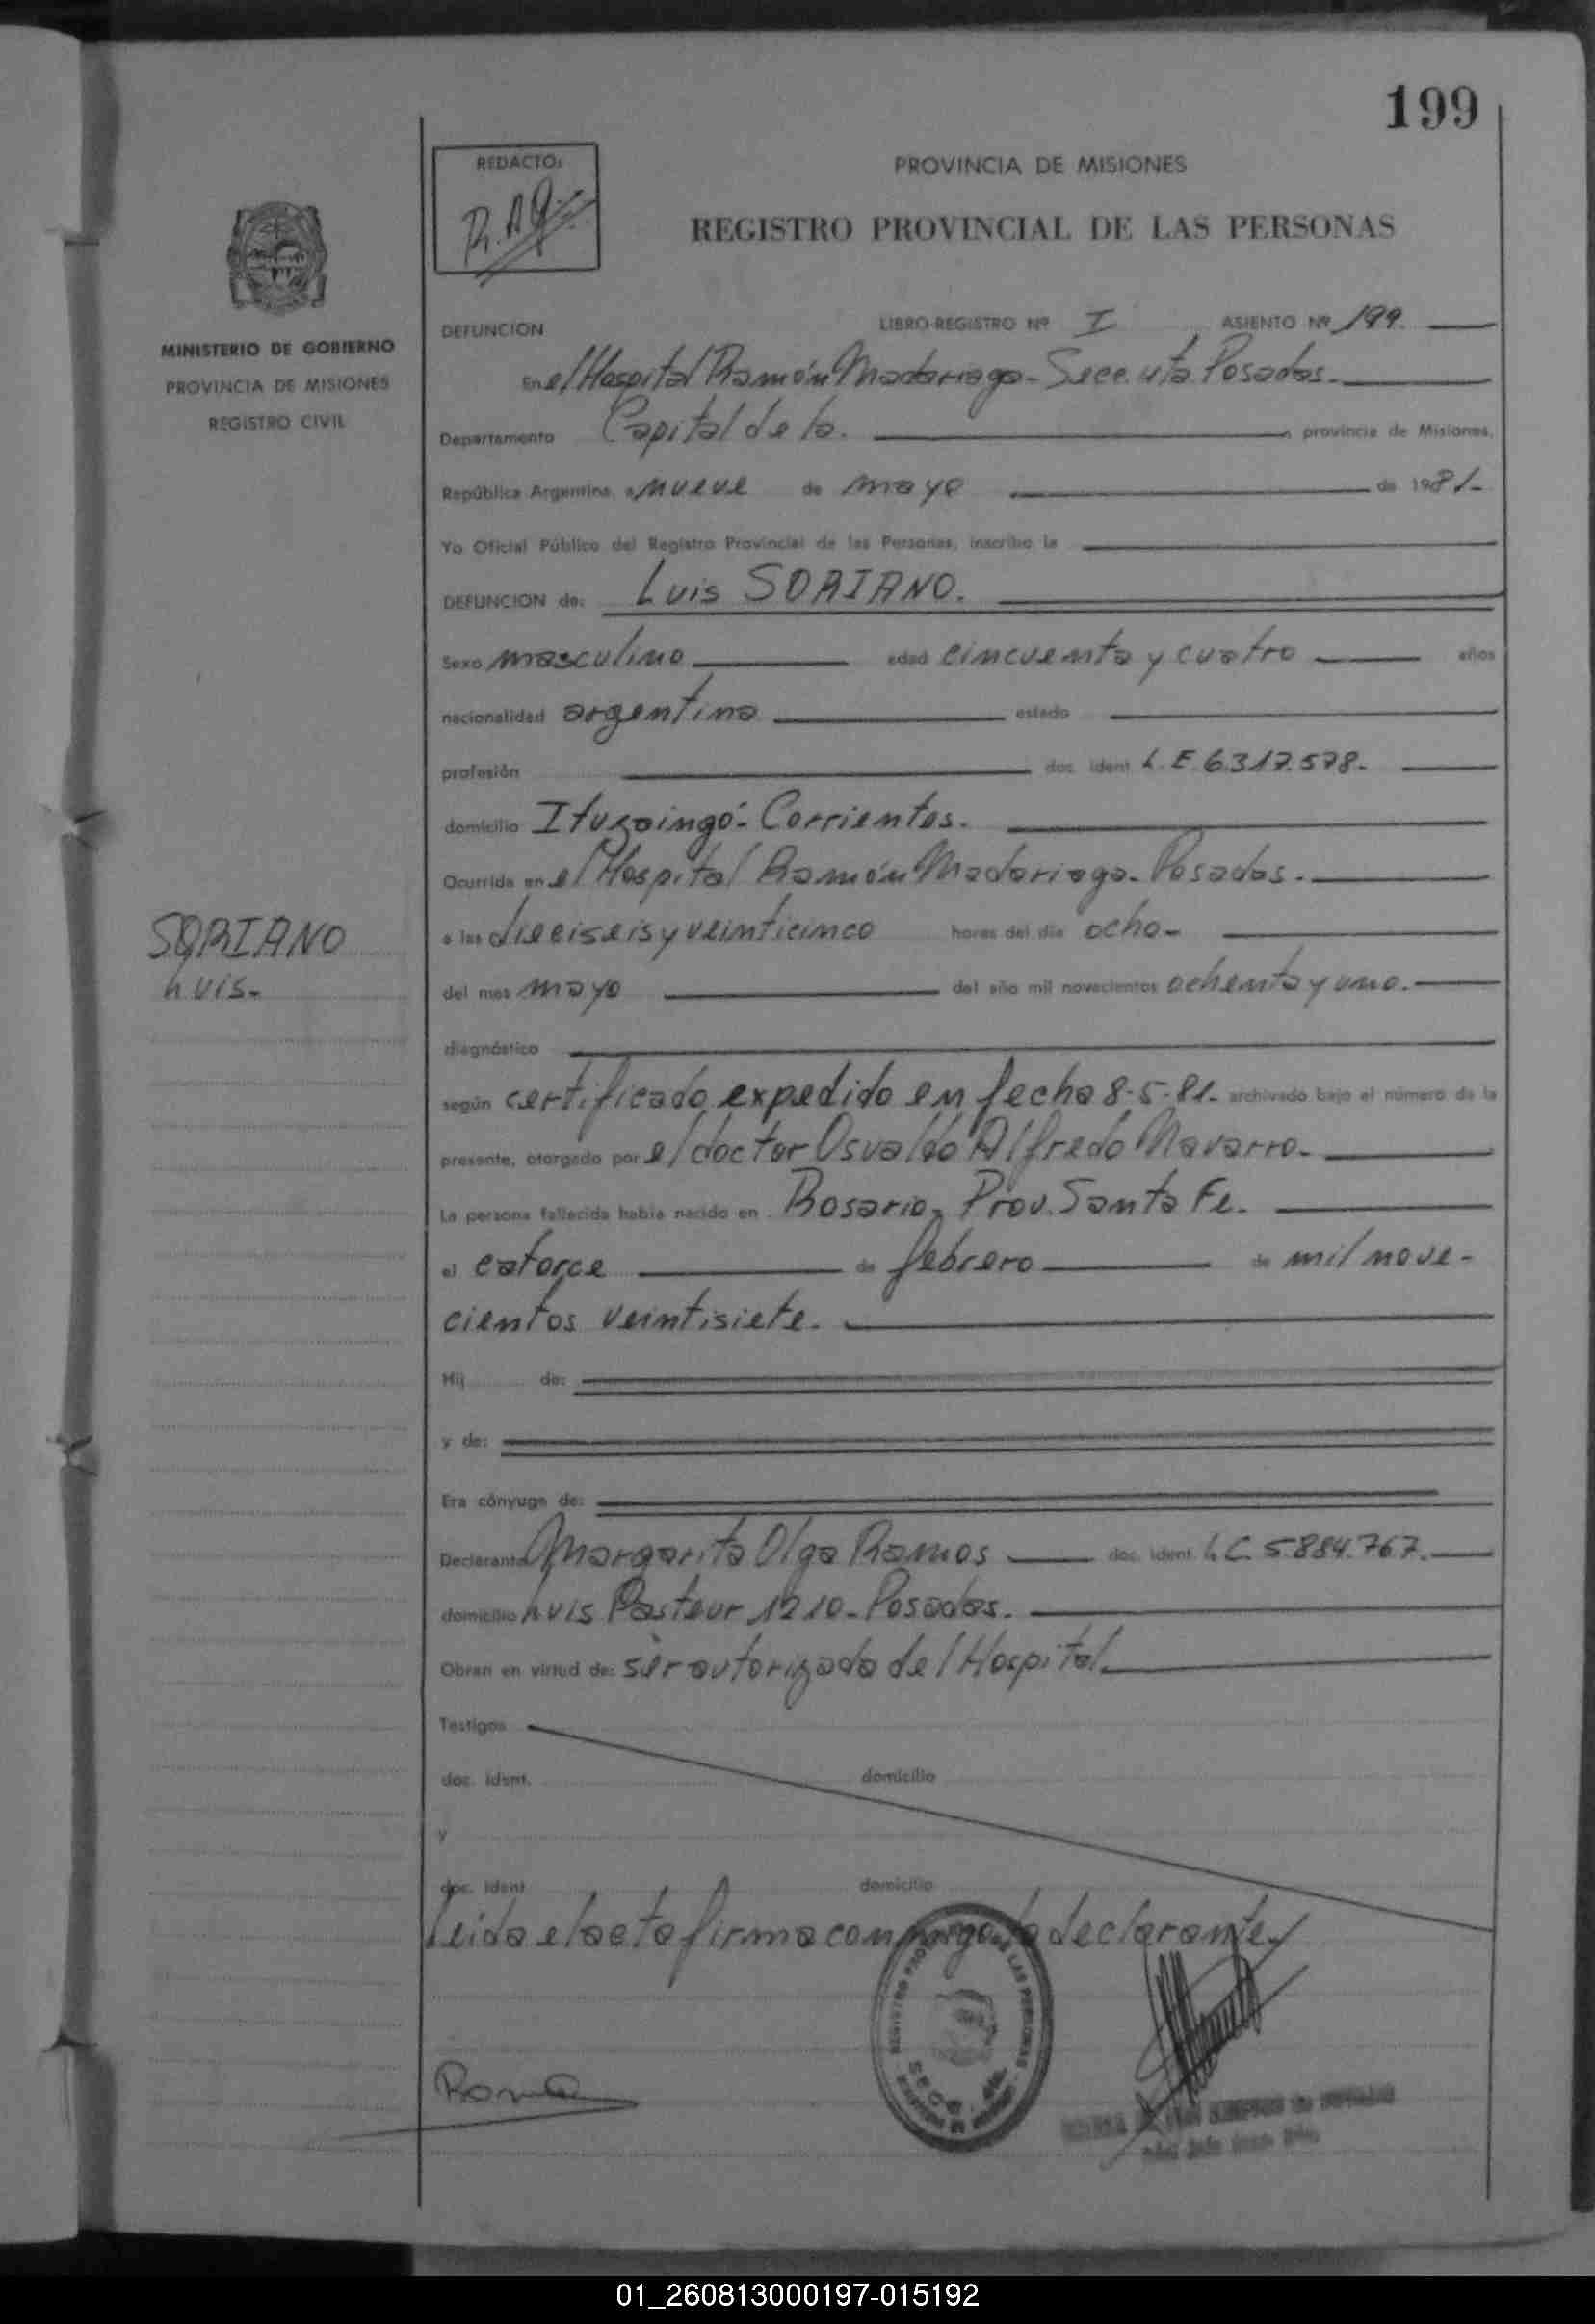 199
REDACTO:
PROVINCIA DE MISIONES
REGISTRO PROVINCIAL DE LAS PERSONAS
MINISTERIO DE GOBIERNO
PROVINCIA DE MISIONES
REGISTRO CIVIL
DEFUNCION LIBRO-REGISTRO Nº I ASIENTO Nº 199.
En el Hospital Ramón Madariaga - Posadas.
Departamento Capital de la. provincia de Misiones,
República Argentina, a nueve de mayo de 1981-
Yo Oficial Público del Registro Provincial de las Personas, inscribo la
DEFUNCION de: Luis SORIANO.
Sexo masculino edad cincuenta y cuatro años
nacionalidad argentina estado
profesión doc. ident L.E. 6.317.578.
domicilio Ituzaingó - Corrientes.
Ocurrida en el Hospital Ramón Madariaga - Posadas.
a las dieciseis y veinticinco horas del día ocho-
SORIANO
Luis-
del mes mayo del año mil novecientos ochenta y uno.
diagnóstico
según certificado expedido en fecha 8-5-81- archivado bajo el número de la
presente, otorgado por el doctor Osvaldo Alfredo Navarro-
La persona fallecida había nacido en Rosario, Prov. Santa Fe.
el catorce de febrero de mil nove-
cientos veintisiete.
Hij de:
y de:
Era cónyuge de:
Declarante Margarita Olga Ramos doc. ident. L.C. 5.884.767.
domicilio Luis Pasteur 1210 - Posadas.
Obran en virtud de: ser autorizada del Hospital.
Testigos
doc. ident. domicilio
y
doc. ident domicilio
Leida el acta firma conmigo la declarante
01_260813000197-015192